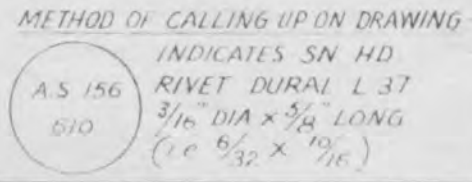 METHOD OF CALLING UP ON DRAWING
INDICATES SN HD
A.S 156 RIVET DURAL L 37
610 3/16" DIA × 5/8" LONG
(i.e 6/32 × 10/16)